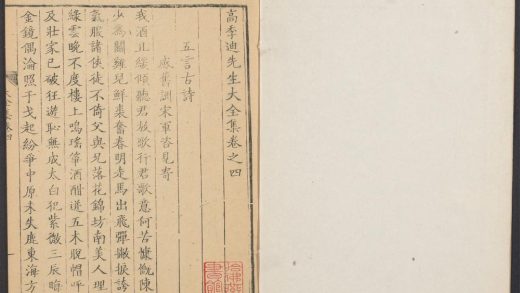 高季迪先生大全集卷之四
五言古詩
感舊酬宋軍咨見寄
我酒且緩傾聽君放歌行君歌意何苦慷慨陳平生
少為關雞兒鮮裘奮春明走馬出飛彈撇捩誇身輕
氣服諸俠徒不倚父與兄落花錦坊南美人理箏
綠雲晚不度樓上鳴瑤箏酒酣送五木脫帽呼
及壯家已破狂遊恥無成太白犯紫微三辰暗
金鏡偶淪照干戈起紛爭中原未失鹿東海方
哈佛燕
書館